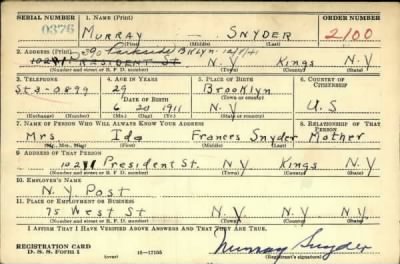 SERIAL NUMBER 1. NAME (Print) ORDER NUMBER
0376 MURRAY — SNYDER 2100
(First) (Middle) (Last)
2. ADDRESS (Print) 390 Parkside BKLYN 12/7/41
PRESIDENT ST N.Y Kings N.Y
(Number and street or R. F. D. number) (Town) (County) (State)
3. TELEPHONE 4. AGE IN YEARS 5. PLACE OF BIRTH 6. COUNTRY OF CITIZENSHIP
ST 3-0899 29 Brooklyn
DATE OF BIRTH (Town or county)
6 20 1911 N.Y U.S
(Exchange) (Number) (Mo.) (Day) (Yr.) (State or country)
7. NAME OF PERSON WHO WILL ALWAYS KNOW YOUR ADDRESS 8. RELATIONSHIP OF THAT PERSON
Mrs Ida Frances Snyder Mother
(Mr., Mrs., Miss) (First) (Middle) (Last)
9. ADDRESS OF THAT PERSON
President St. N.Y Kings N.Y
(Number and street or R. F. D. number) (Town) (County) (State)
10. EMPLOYER'S NAME
N.Y. Post
11. PLACE OF EMPLOYMENT OR BUSINESS
75 West St N.Y N.Y
(Number and street or R. F. D. number) (Town) (County) (State)
I AFFIRM THAT I HAVE VERIFIED ABOVE ANSWERS AND THAT THEY ARE TRUE.
REGISTRATION CARD
D. S. S. FORM 1 (over) 16—17105 Murray Snyder
(Registrant's signature)